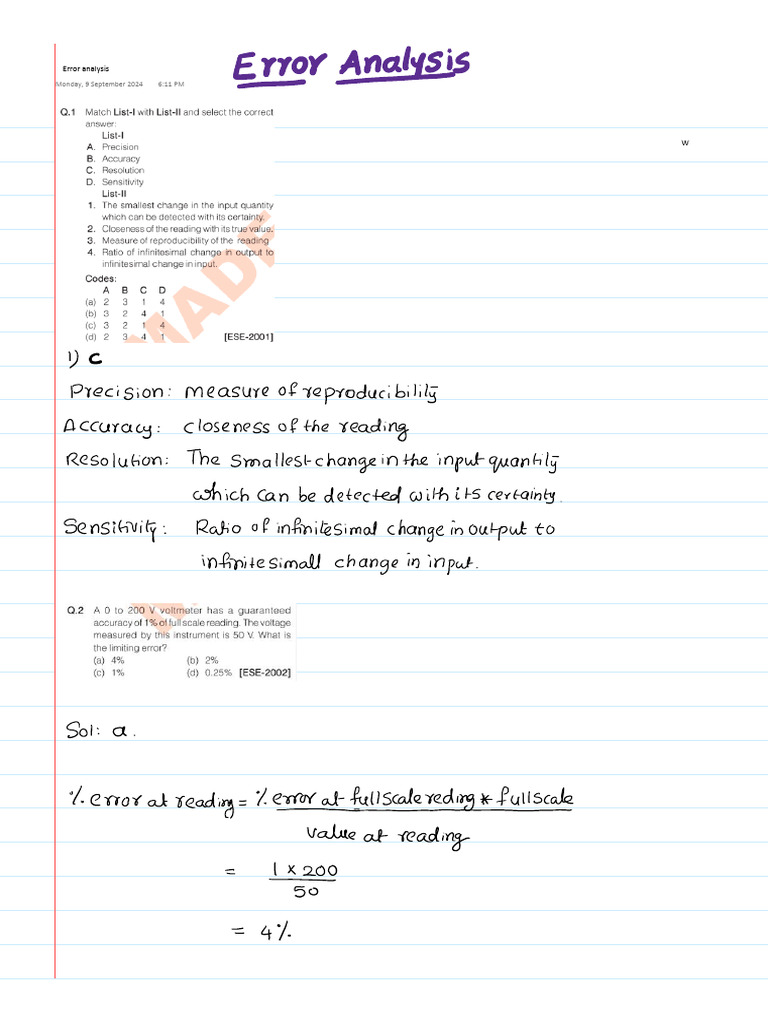 Error Analysis
Error analysis
Monday, 9 September 2024 6:11 PM
Q.1 Match List-I with List-II and select the correct
answer:
w
List-I
A. Precision
B. Accuracy
C. Resolution
D. Sensitivity
List-II
1. The smallest change in the input quantity
which can be detected with its certainty.
2. Closeness of the reading with its true value.
3. Measure of reproducibility of the reading
4. Ratio of infinitesimal change in output to
infinitesimal change in input.
Codes:
A B C D
(a) 2 3 1 4
(b) 3 2 4 1
(c) 3 2 1 4
(d) 2 3 4 1 [ESE-2001]
MADE
1) C
Precision: measure of reproducibility
Accuracy: closeness of the reading
Resolution: The smallest change in the input quantity
which can be detected with its certainty.
Sensitivity: Ratio of infinitesimal change in output to
infinitesimall change in input.
Q.2 A 0 to 200 V voltmeter has a guaranteed
accuracy of 1% of full scale reading. The voltage
measured by this instrument is 50 V. What is
the limiting error?
(a) 4% (b) 2%
(c) 1% (d) 0.25% [ESE-2002]
Sol: a.
% error at reading = % error at fullscale reding * fullscale
value at reading
= 1 × 200
50
= 4%